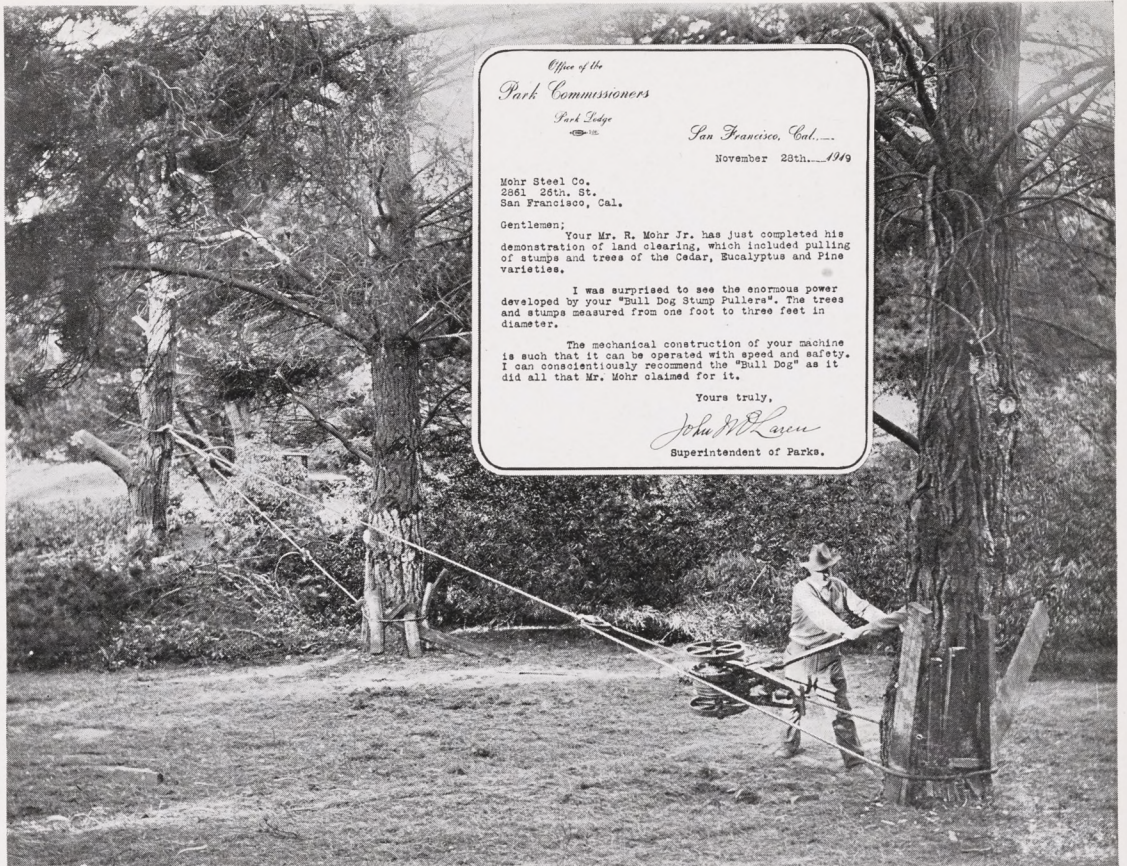 Office of the
Park Commissioners
Park Lodge
San Francisco, Cal.,
November 28th. 1919
Mohr Steel Co.
2861 26th. St.
San Francisco, Cal.
Gentlemen;
Your Mr. R. Mohr Jr. has just completed his
demonstration of land clearing, which included pulling
of stumps and trees of the Cedar, Eucalyptus and Pine
varieties.
I was surprised to see the enormous power
developed by your "Bull Dog Stump Pullers". The trees
and stumps measured from one foot to three feet in
diameter.
The mechanical construction of your machine
is such that it can be operated with speed and safety.
I can conscientiously recommend the "Bull Dog" as it
did all that Mr. Mohr claimed for it.
Yours truly,
John McLaren
Superintendent of Parks.